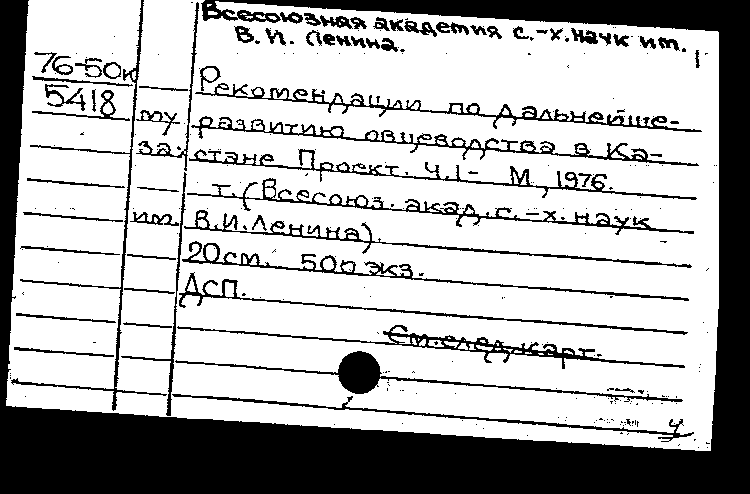 Всесоюзная академия с.-х. наук им.
В. И. Ленина.
76-50к
5418
Рекомендации по дальнейше-
му развитию овцеводства в Ка-
захстане Проект. Ч.1- М., 1976.
т. (Всесоюз. акад. с.-х. наук
им. В.И. Ленина).
20см. 500 экз.
ДСП.
См. след. карт.